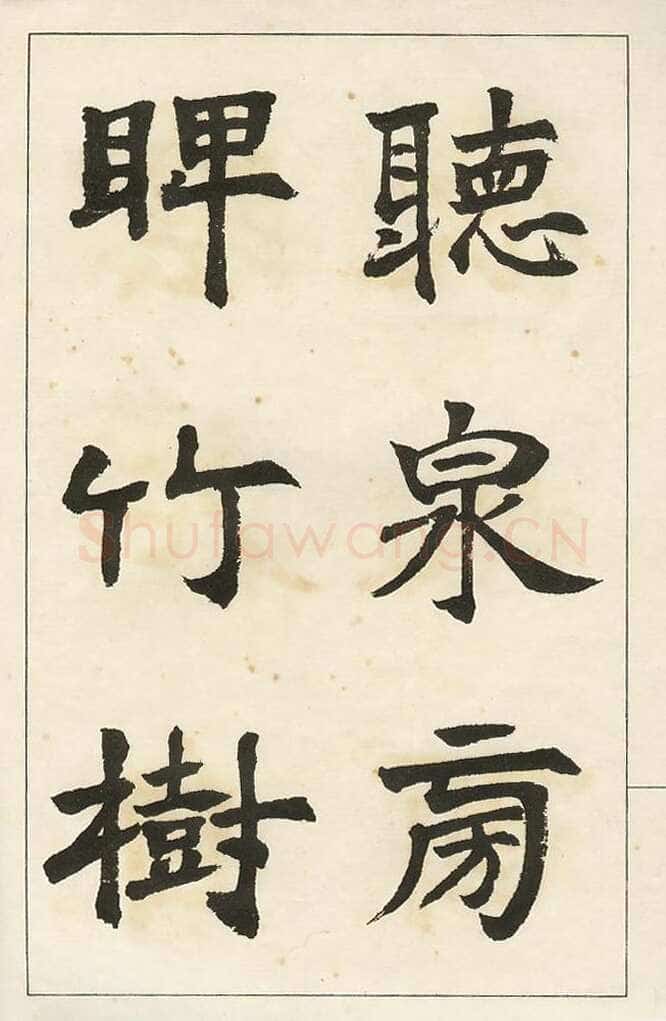 聽泉旁
睥竹樹
Shufawang.CN